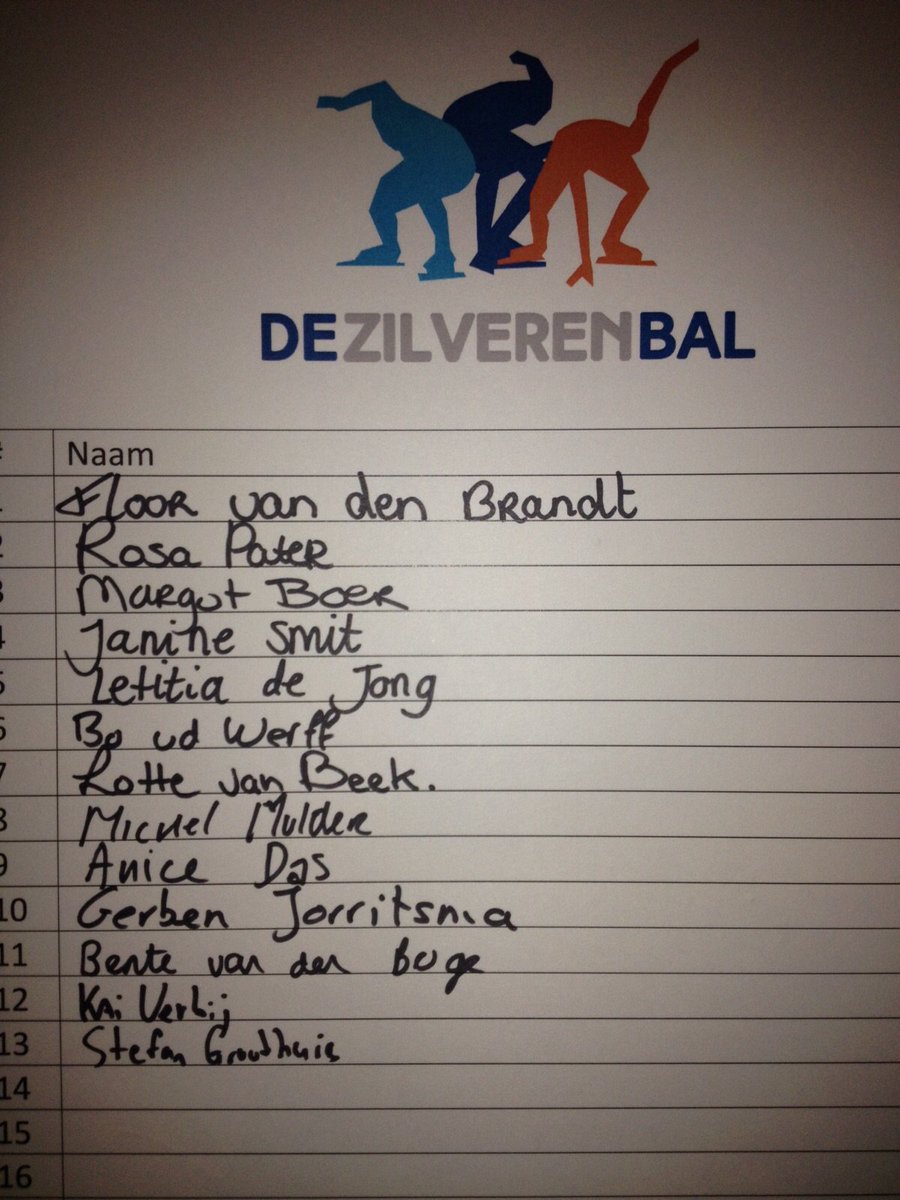 DEZILVERENBAL
Naam
Floor van den Brandt
2 Rosa Pater
3 Margot Boer
4 Janine Smit
5 Letitia de Jong
6 Bo vd Werff
7 Lotte van Beek.
8 Michel Mulder
9 Anice Das
10 Gerben Jorritsma
11 Bente van den
12 Kai Verbij
13 Stefan Groothuis
14
15
16